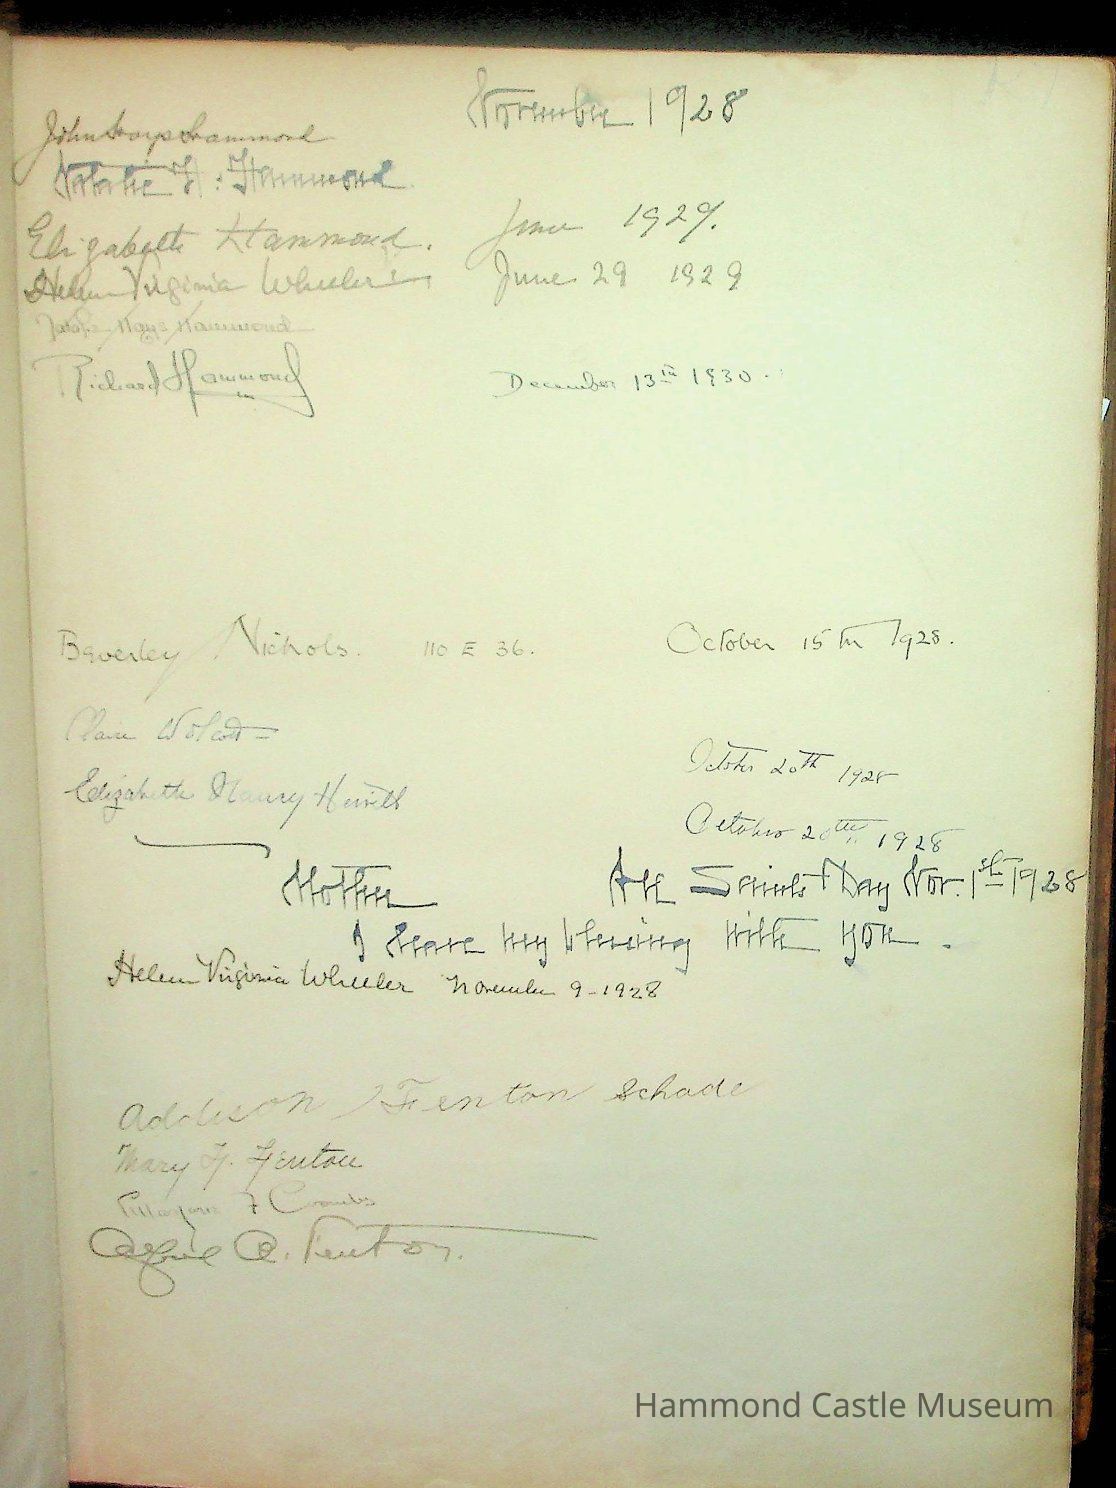 November 1928
John Hays Hammond
Natalie H. Hammond
Elizabeth Hammond. June 1929.
Helen Virginia Wheeler June 29 1929
Natalie Hays Hammond
Richard Hammond December 13th 1930.
Beverley Nichols. 110 E 36. October 15th 1928.
Claire Wolcott October 20th 1928
Elizabeth Maury October 20th 1928
Mother All Saints Day Nov. 1st 1928
I leave my blessing with you.
Helen Virginia Wheeler November 9-1928
Addison Fenton Schade
Mary F. Fenton
F
A. Fenton.
Hammond Castle Museum